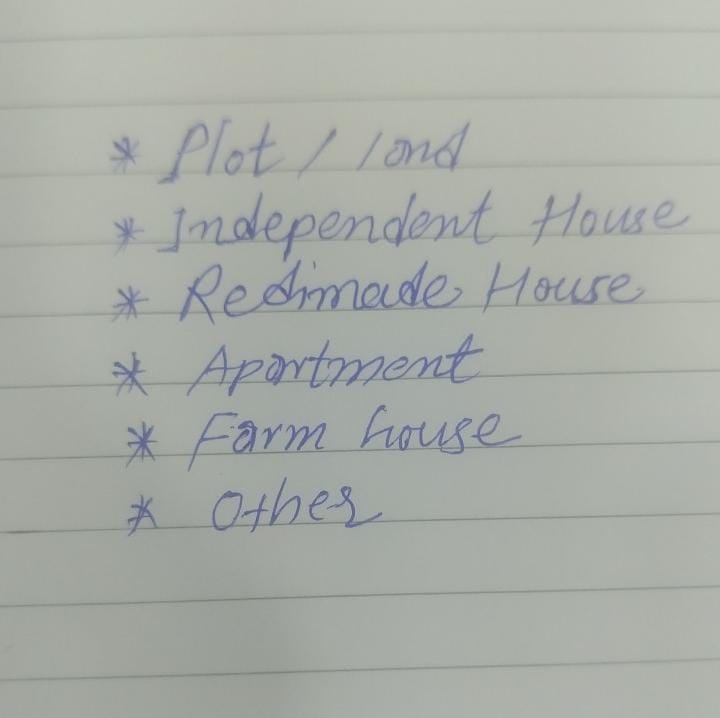 * Plot / land
* Independent House
* Redimade House
* Apartment
* Farm house
* Other